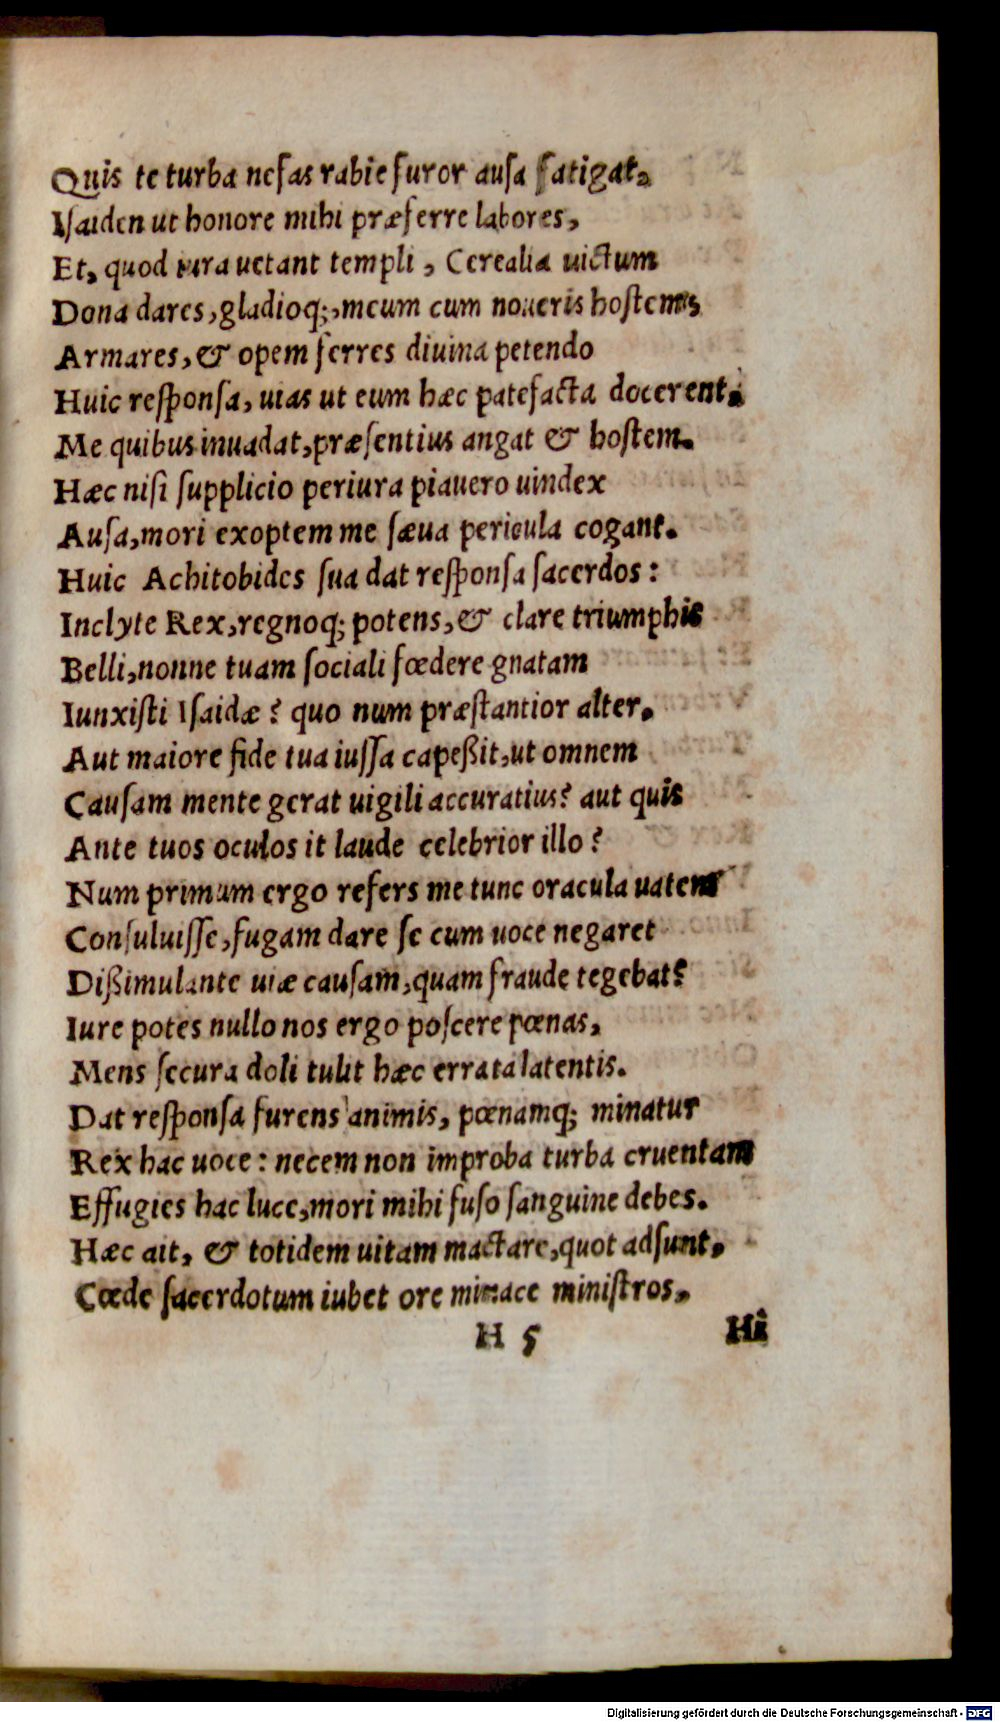 Quis te turba nefas rabie furor ausa fatigat,
Iſaiden ut honore mihi præferre labores,
Et, quod iura uetant templi, Cerealia uictum
Dona dares, gladioq;, meum cum noueris hoſtem,
Armares, & opem ferres diuina petendo
Huic reſponſa, uias ut eum hæc patefacta docerent,
Me quibus inuadat, præſentius angat & hoſtem.
Hæc niſi ſupplicio periura piauero uindex
Auſa, mori exoptem me ſæua pericula cogant.
Huic Achitobides ſua dat reſponſa ſacerdos:
Inclyte Rex, regnoq; potens, & clare triumphis
Belli, nonne tuam ſociali fœdere gnatam
Iunxiſti Iſaidæ? quo num præſtantior alter,
Aut maiore fide tua iuſſa capeßit, ut omnem
Cauſam mente gerat uigili accuratius? aut quis
Ante tuos oculos it laude celebrior illo?
Num primum ergo refers me tunc oracula uatem
Conſuluiſſe, fugam dare ſe cum uoce negaret
Dißimulante uiæ cauſam, quam fraude tegebat?
Iure potes nullo nos ergo poſcere pœnas,
Mens ſecura doli tulit hæc errata latentis.
Dat reſponſa furens animis, pœnamq; minatur
Rex hac uoce: necem non improba turba cruentam
Effugies hac luce, mori mihi fuſo ſanguine debes.
Hæc ait, & totidem uitam mactare, quot adſunt,
Cœde ſacerdotum iubet ore minace miniſtros,
H 5 Hi
Digitalisierung gefördert durch die Deutsche Forschungsgemeinschaft - DFG